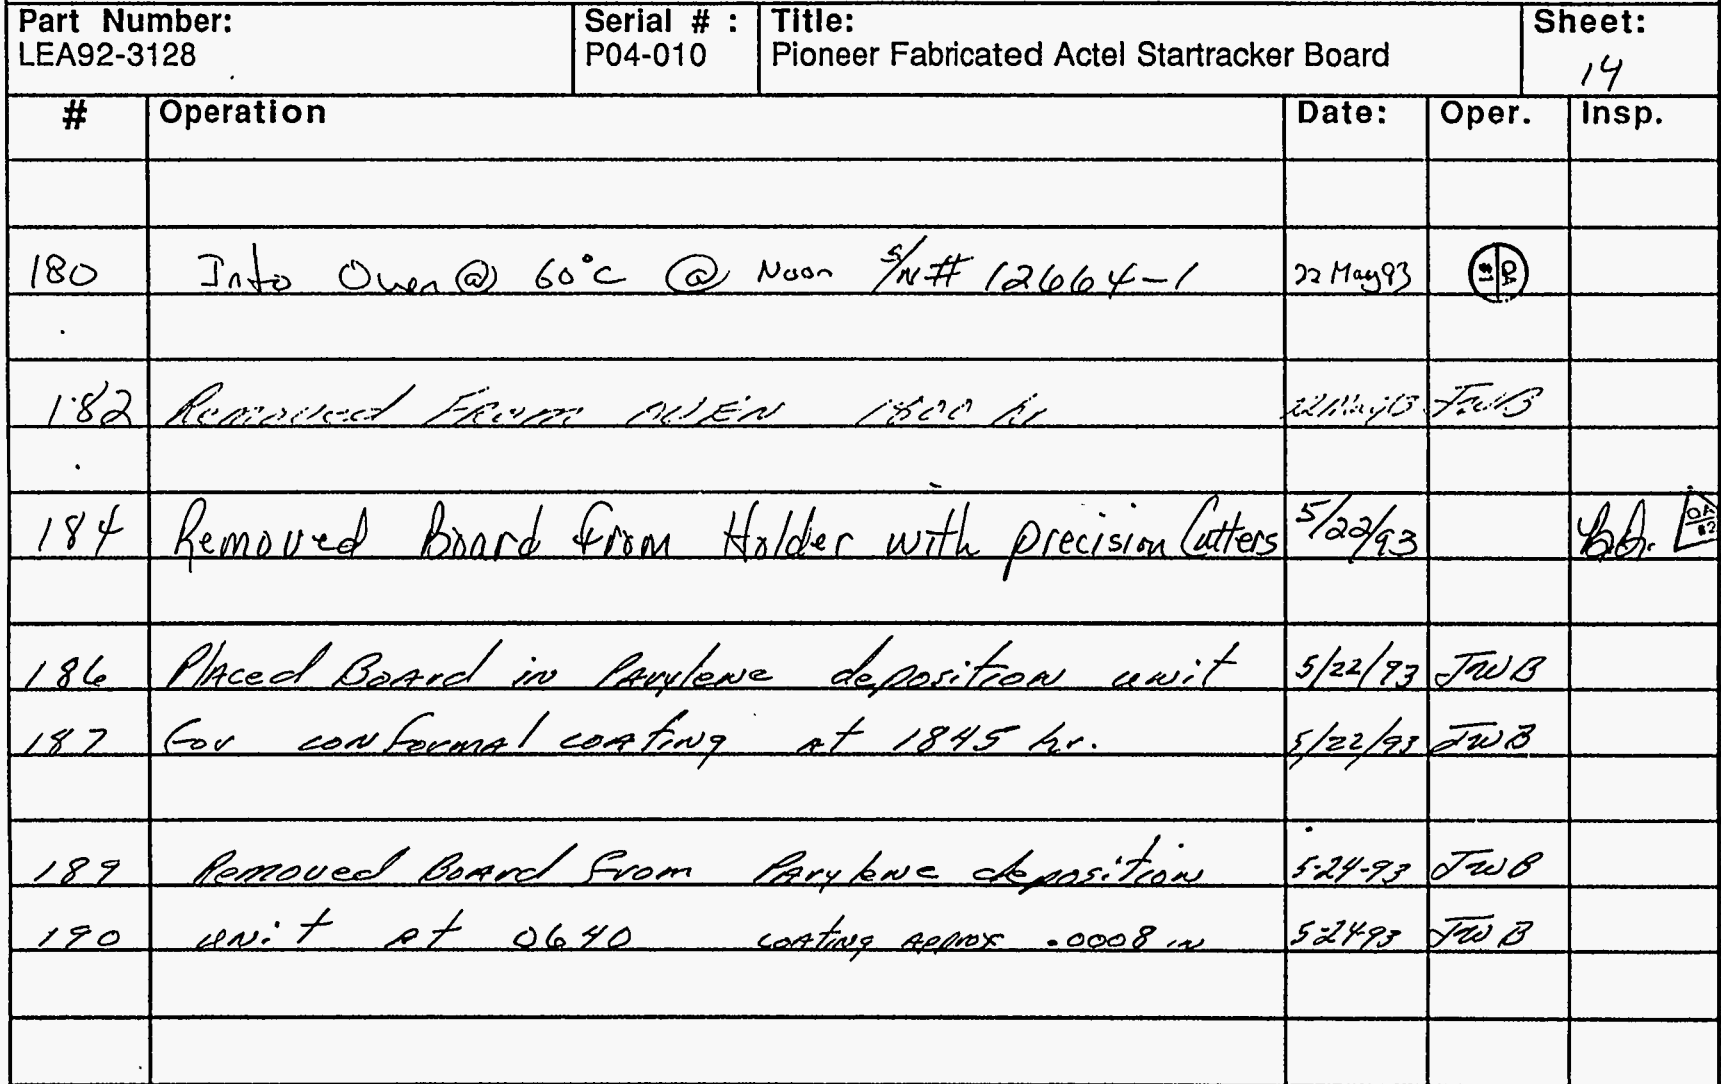 Part Number: Serial # : Title: Sheet:
LEA92-3128 P04-010 Pioneer Fabricated Actel Startracker Board 14
# Operation Date: Oper. Insp.
180 Into Oven @ 60°C @ Noon S/N# 12664-1 22 May 93
182 Removed From OVEN 1800 hr 22 May 93 JWB
184 Removed Board From Holder with precision Cutters 5/22/93
186 Placed Board in Parylene deposition unit 5/22/93 JWB
187 For conformal coating at 1845 hr. 5/22/93 JWB
189 Removed Board from Parylene deposition 5-24-93 JWB
190 unit at 0640 coating approx .0008 in 5-24-93 JWB